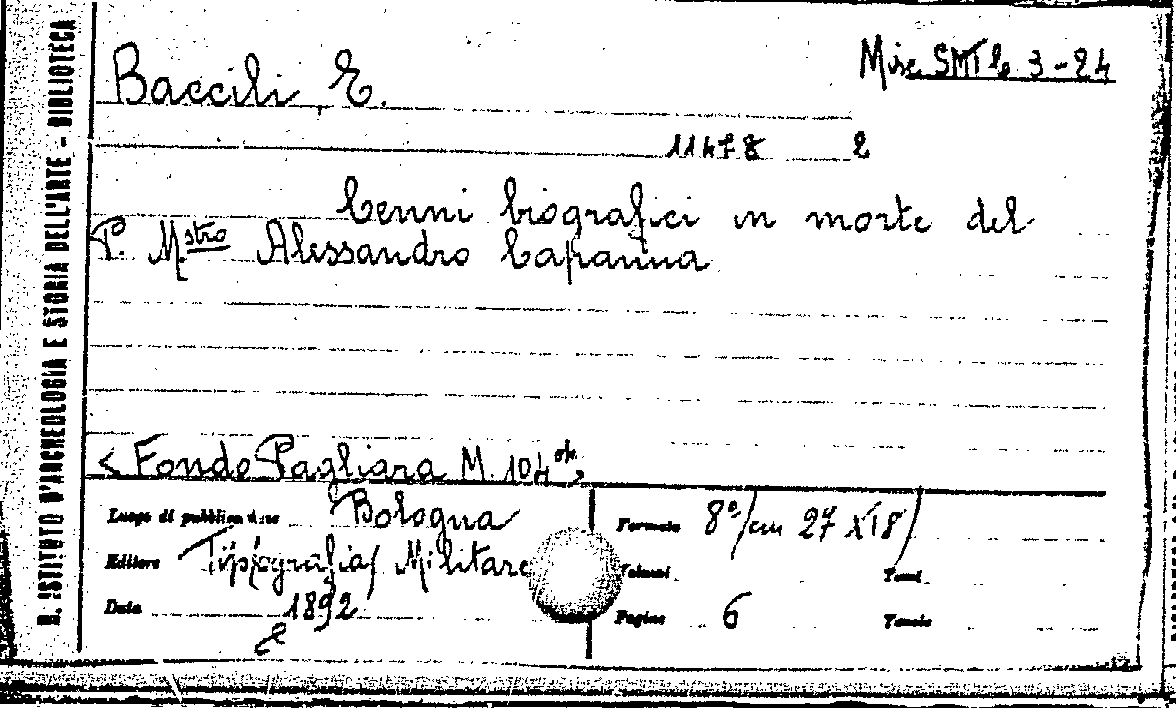 R. ISTITUTO D'ARCHEOLOGIA E STORIA DELL'ARTE - BIBLIOTECA
Baccili, E.
Misc SMTle 3-24
11478 2
Cenni biografici in morte del
P. M.stro Alessandro Capanna
< Fondo Pagliara M. 104
Luogo di pubblicazione Bologna
Formato 8º/cm 27 x18/
Editore Tipografia Militare
Volumi
Tomi
Data 1892
Pagine 6
Tavole